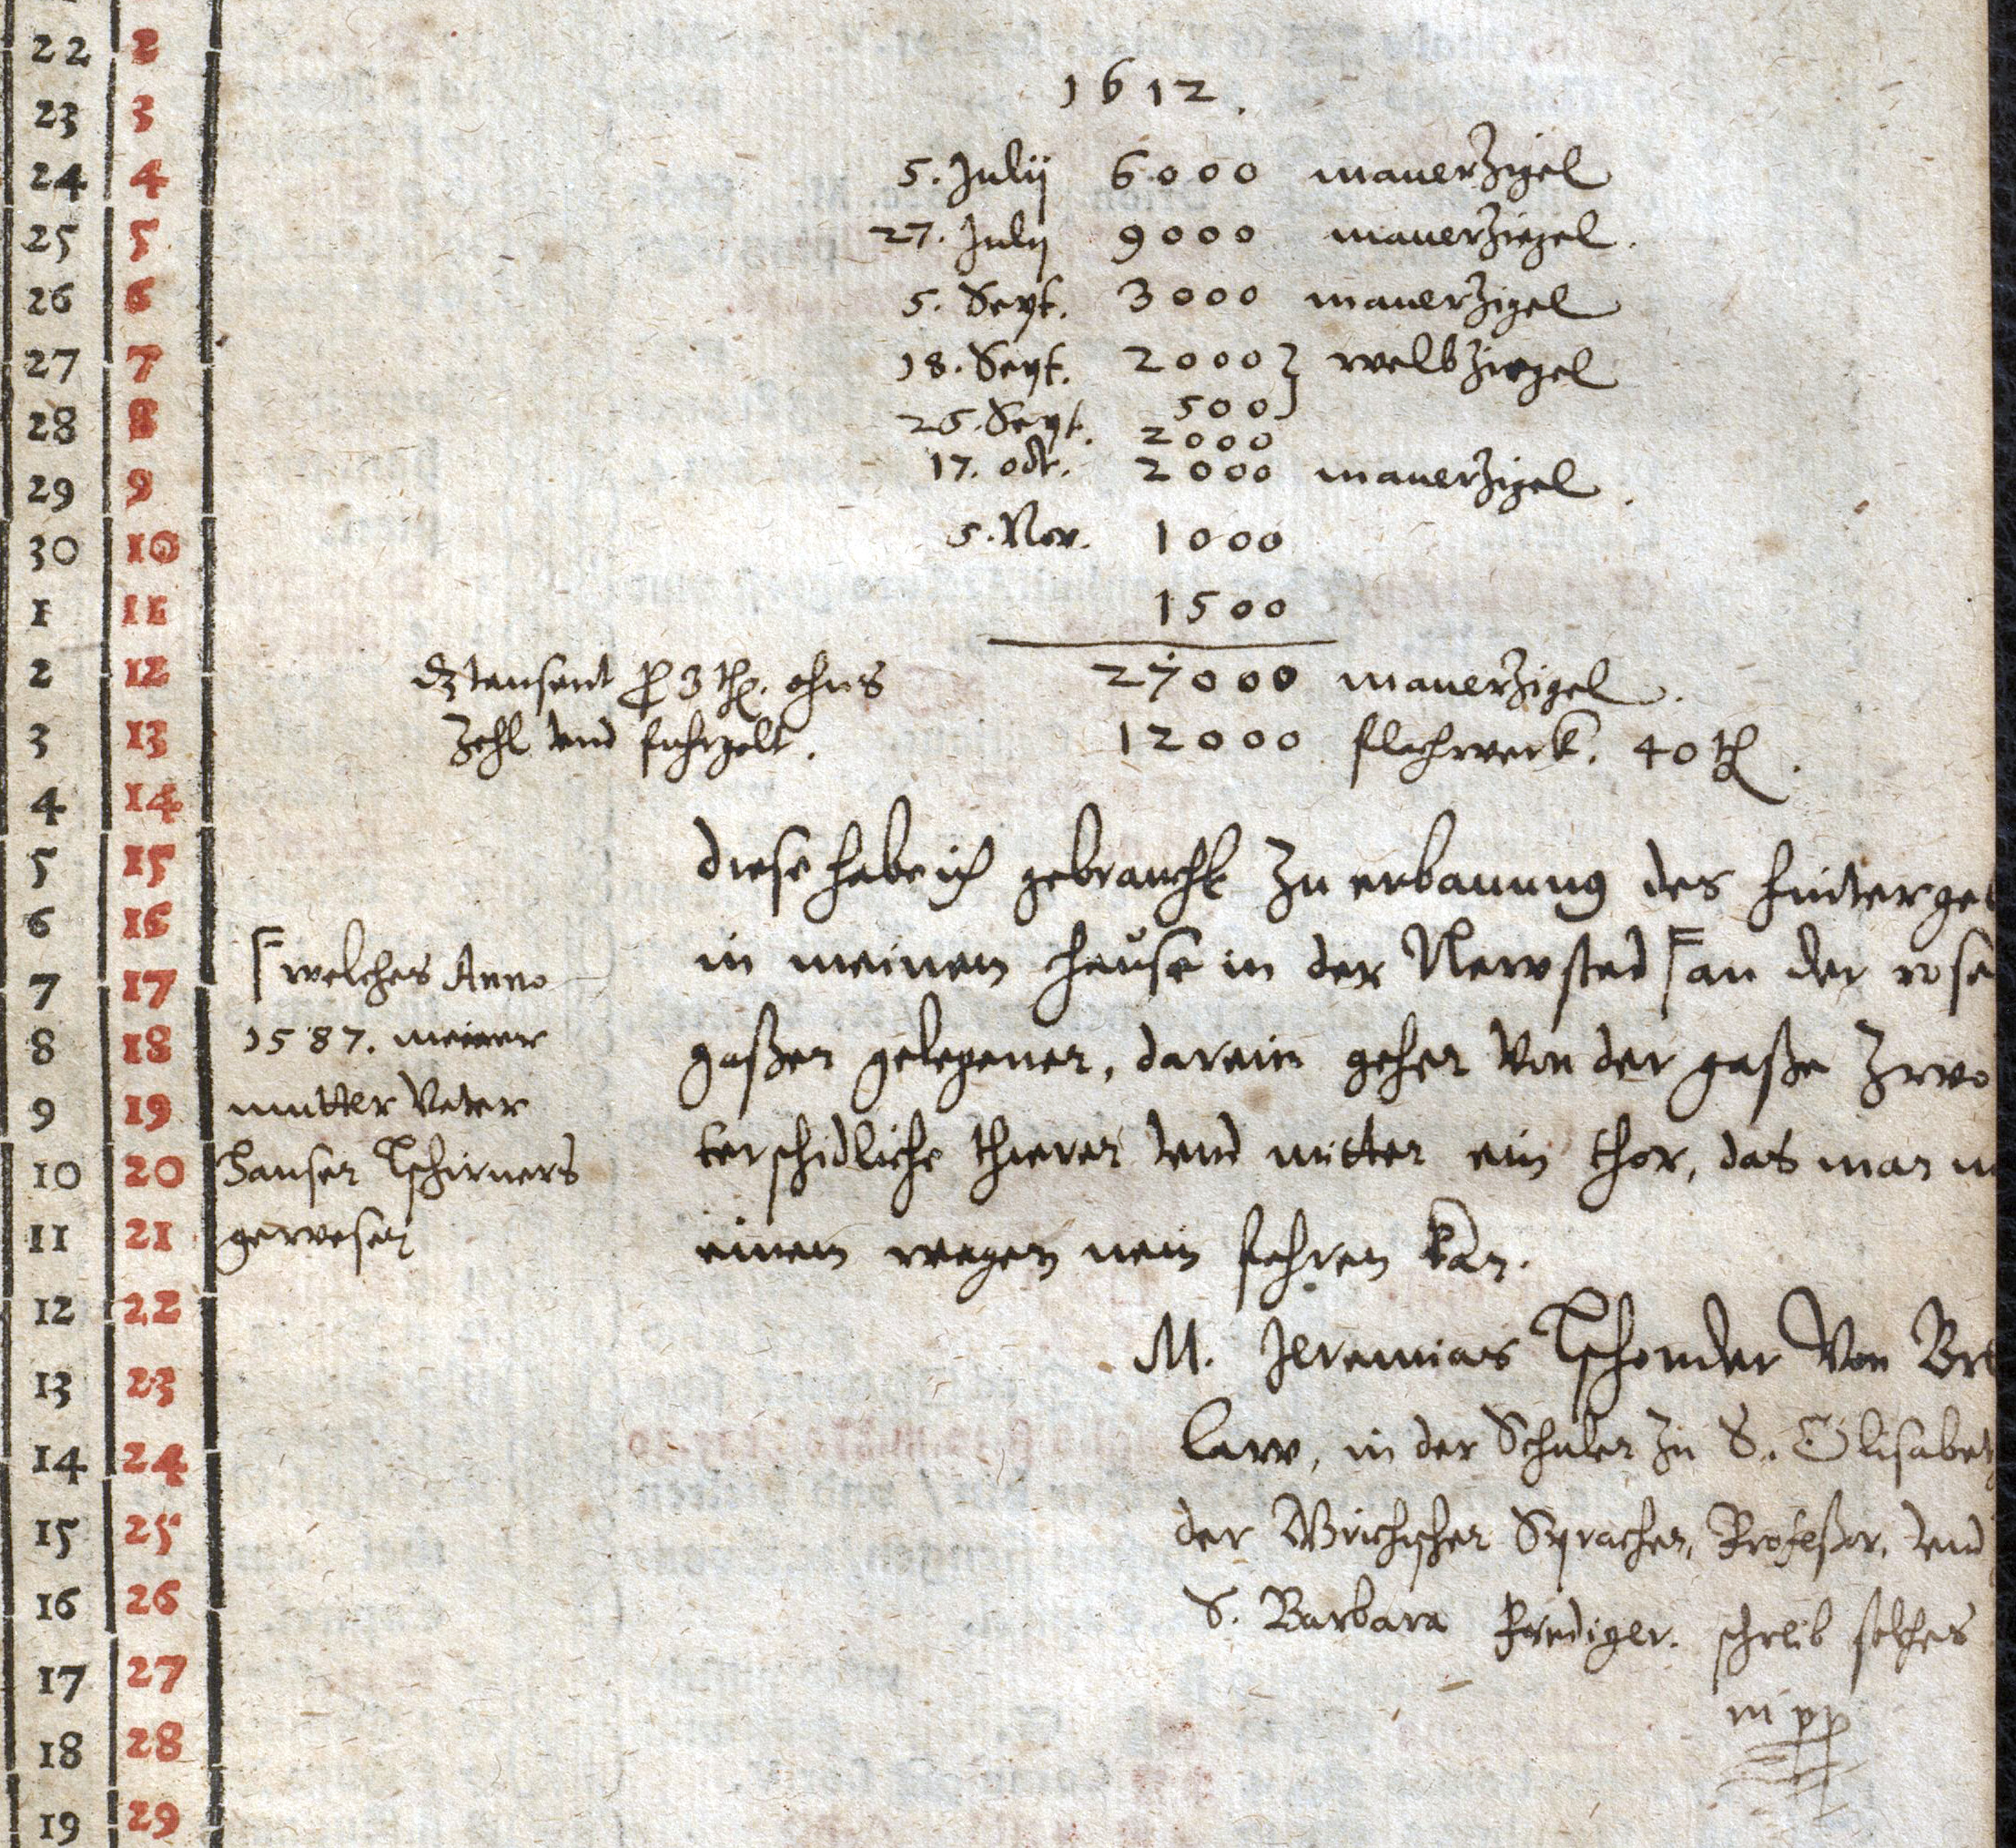 22 2
23 3
24 4
25 5
26 6
27 7
28 8
29 9
30 10
1 11
2 12
3 13
4 14
5 15
6 16
7 17
8 18
9 19
10 20
11 21
12 22
13 23
14 24
15 25
16 26
17 27
18 28
19 29
1612.
5. Julij 6000 mauerzigel
27. July 9000 mauerziegel.
5. Sept. 3000 mauerzigel
18. Sept. 2000 welbziegel
500
26. Sept. 2000
17. octr. 2000 mauerzigel.
5. Nov. 1000
1500
dz tausent p 3 th. ohne 27000 mauerzigel.
Zehl vnd fuhrgelt. 12000 flachwerk. 40 th.
diese habe ich gebraucht zu erbauung des hinterge
in meinem hause in der Newstad an der rose
gaßen gelegenen, darein gehen von der gaße zwo
terschidliche thieren vnd mitten ein thor, das man
einem wagen nein fahren kan.
welches Anno
1587. meiner
mutter Vater
Hansen Tschirners
gewesen
M. Jeremias Tschonder von Bre
law, in der Schulen zu S. Elisabet
der Grichischen Sprachen, Profeßor, vnd
S. Barbara Prediger. schreib solches
m pp